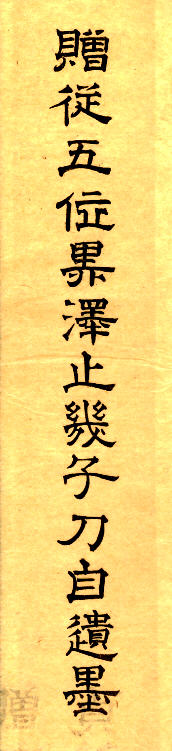 贈從五位黒澤止幾子刀自遺墨